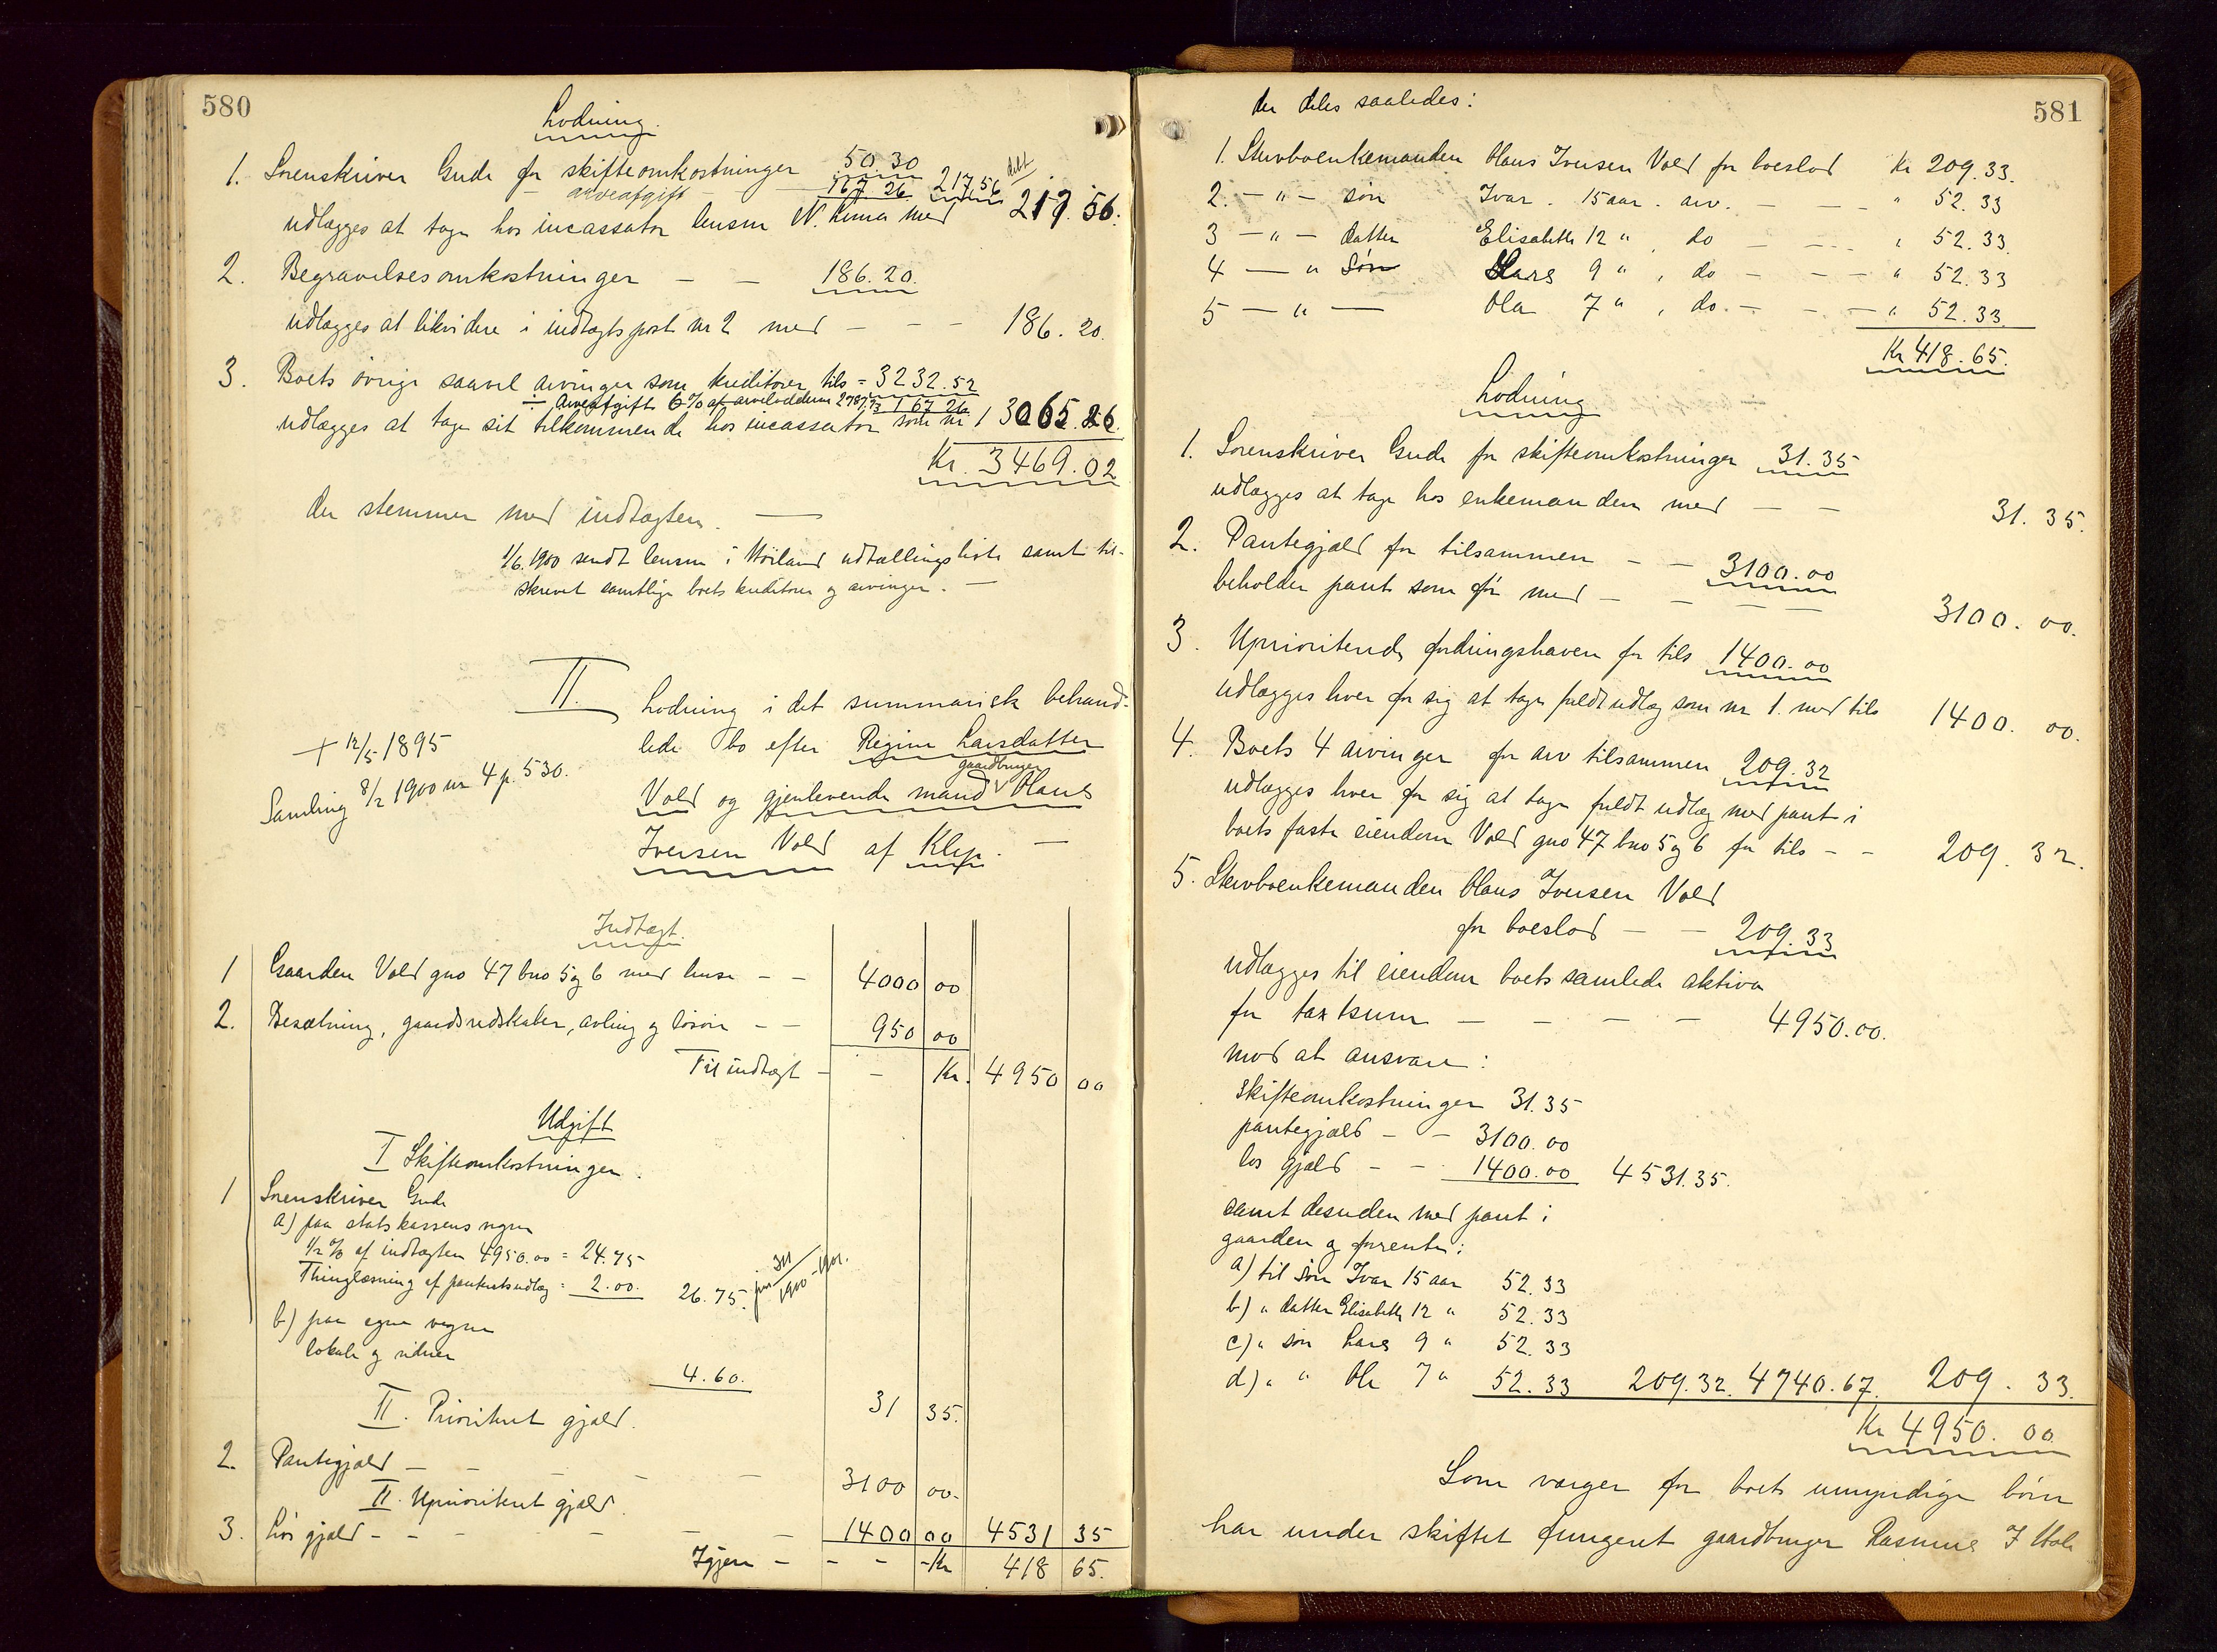 580
Lodning.
1. Sorenskriver Gude for skifteomkostninger 50 30
— arveafgift — 167 26 217,56 dekt
udlægges at tage hos incassator lensm N. Lima med 217.56.
2. Begravelsesomkostninger — — 186.20.
udlægges at likvidere i indtægtspost nr 2 med — — — 186.20.
3. Boets øvrige saavel arvinger som kreditorer tils = 3232.52
÷ Arveafgift 6% af arvelodderne 2787,73 167 26
udlægges at tage sit tilkommende hos incassator som nr 1 3065.26.
Kr. 3469.02
der stemmer med indtægten. —
1/6.1900 sendt lensm i Høiland udtællingsliste samt til-
skrevet samtlige boets kreditorer og arvinger. —
II. Lodning i det summarisk behand-
+ 12/5 1895
lede bo efter Regine Larsdatter
Samling 8/2 1900 nr 4 p. 530.
gaardbruger
Vold og gjenlevende mand Olaus
Iversen Vold af Klep. —
Indtægt.
1 Gaarden Vold gno 47 bno 5 og 6 med huse — — 4000 00
2. Besætning, gaardsredskaber, avling og løsøre — — 950 00
Til indtægt — — Kr. 4950 00
Udgift
I Skifteomkostninger.
1 Sorenskriver Gude
a) paa statskassens vegne
1/2 % af indtægten 4950.00 = 24.75
Thinglæsning af panteretsudlæg = 2.00. 26.75.
b) paa egne vegne
lokale og vidner
4.60. 31 35.
II. Prioritert gjæld.
2. Pantegjæld — — — — — 3100 00.
II. Uprioritert gjæld.
3. Løs gjæld — — — — — — 1400 00 4531 35
Igjen — — — — Kr 418 65.
581
der deles saaledes:
1. Stervboenkemanden Olaus Iversen Vold for boeslod Kr 209.33.
2. — " — søn Ivar. 15 aar. arv. — — — " 52.33
3 — " — datter Elisabeth 12 ", do — — — " 52.33.
4 — " Søn Lars 9 ", do — — — " 52.33
5 — " — Ola 7 ", do. — — — " 52.33.
Kr 418.65.
Lodning
1. Sorenskriver Gude for skifteomkostninger 31.35
udlægges at tage hos enkemanden med — — 31.35.
2. Pantegjæld for tilsammen — — 3100.00
beholder pant som før med — — — — 3100.00.
3. Uprioriterede fordringshavere for tils 1400.00
udlægges hver for sig at tage fuldt udlæg som nr 1. med tils 1400.00.
4. Boets 4 arvinger for arv tilsammen 209.32
udlægges hver for sig at tage fuldt udlæg med pant i
boets faste eiendom Vold gno 47 bno 5 og 6 for tils — — 209.32.
5. Stervboenkemanden Olaus Iversen Vold
for boeslod — — 209.33
udlægges til eiendom boets samlede aktiva
for taxtsum — — — — 4950.00.
mod at ansvare:
Skifteomkostninger 31.35
pantegjæld — — 3100.00
løs gjæld — — 1400.00 4531.35.
samt desuden med pant i
gaarden og forrente:
a) til søn Ivar 15 aar 52.33
b) " datter Elisabeth 12 " 52.33
c) " søn Lars 9 " 52.33
d) " " Ole 7 " 52.33 209.32. 4740.67. 209.33.
Kr 4950.00
Som værger for boets umyndige børn
har under skiftet fungeret gaardbruger Rasmus I